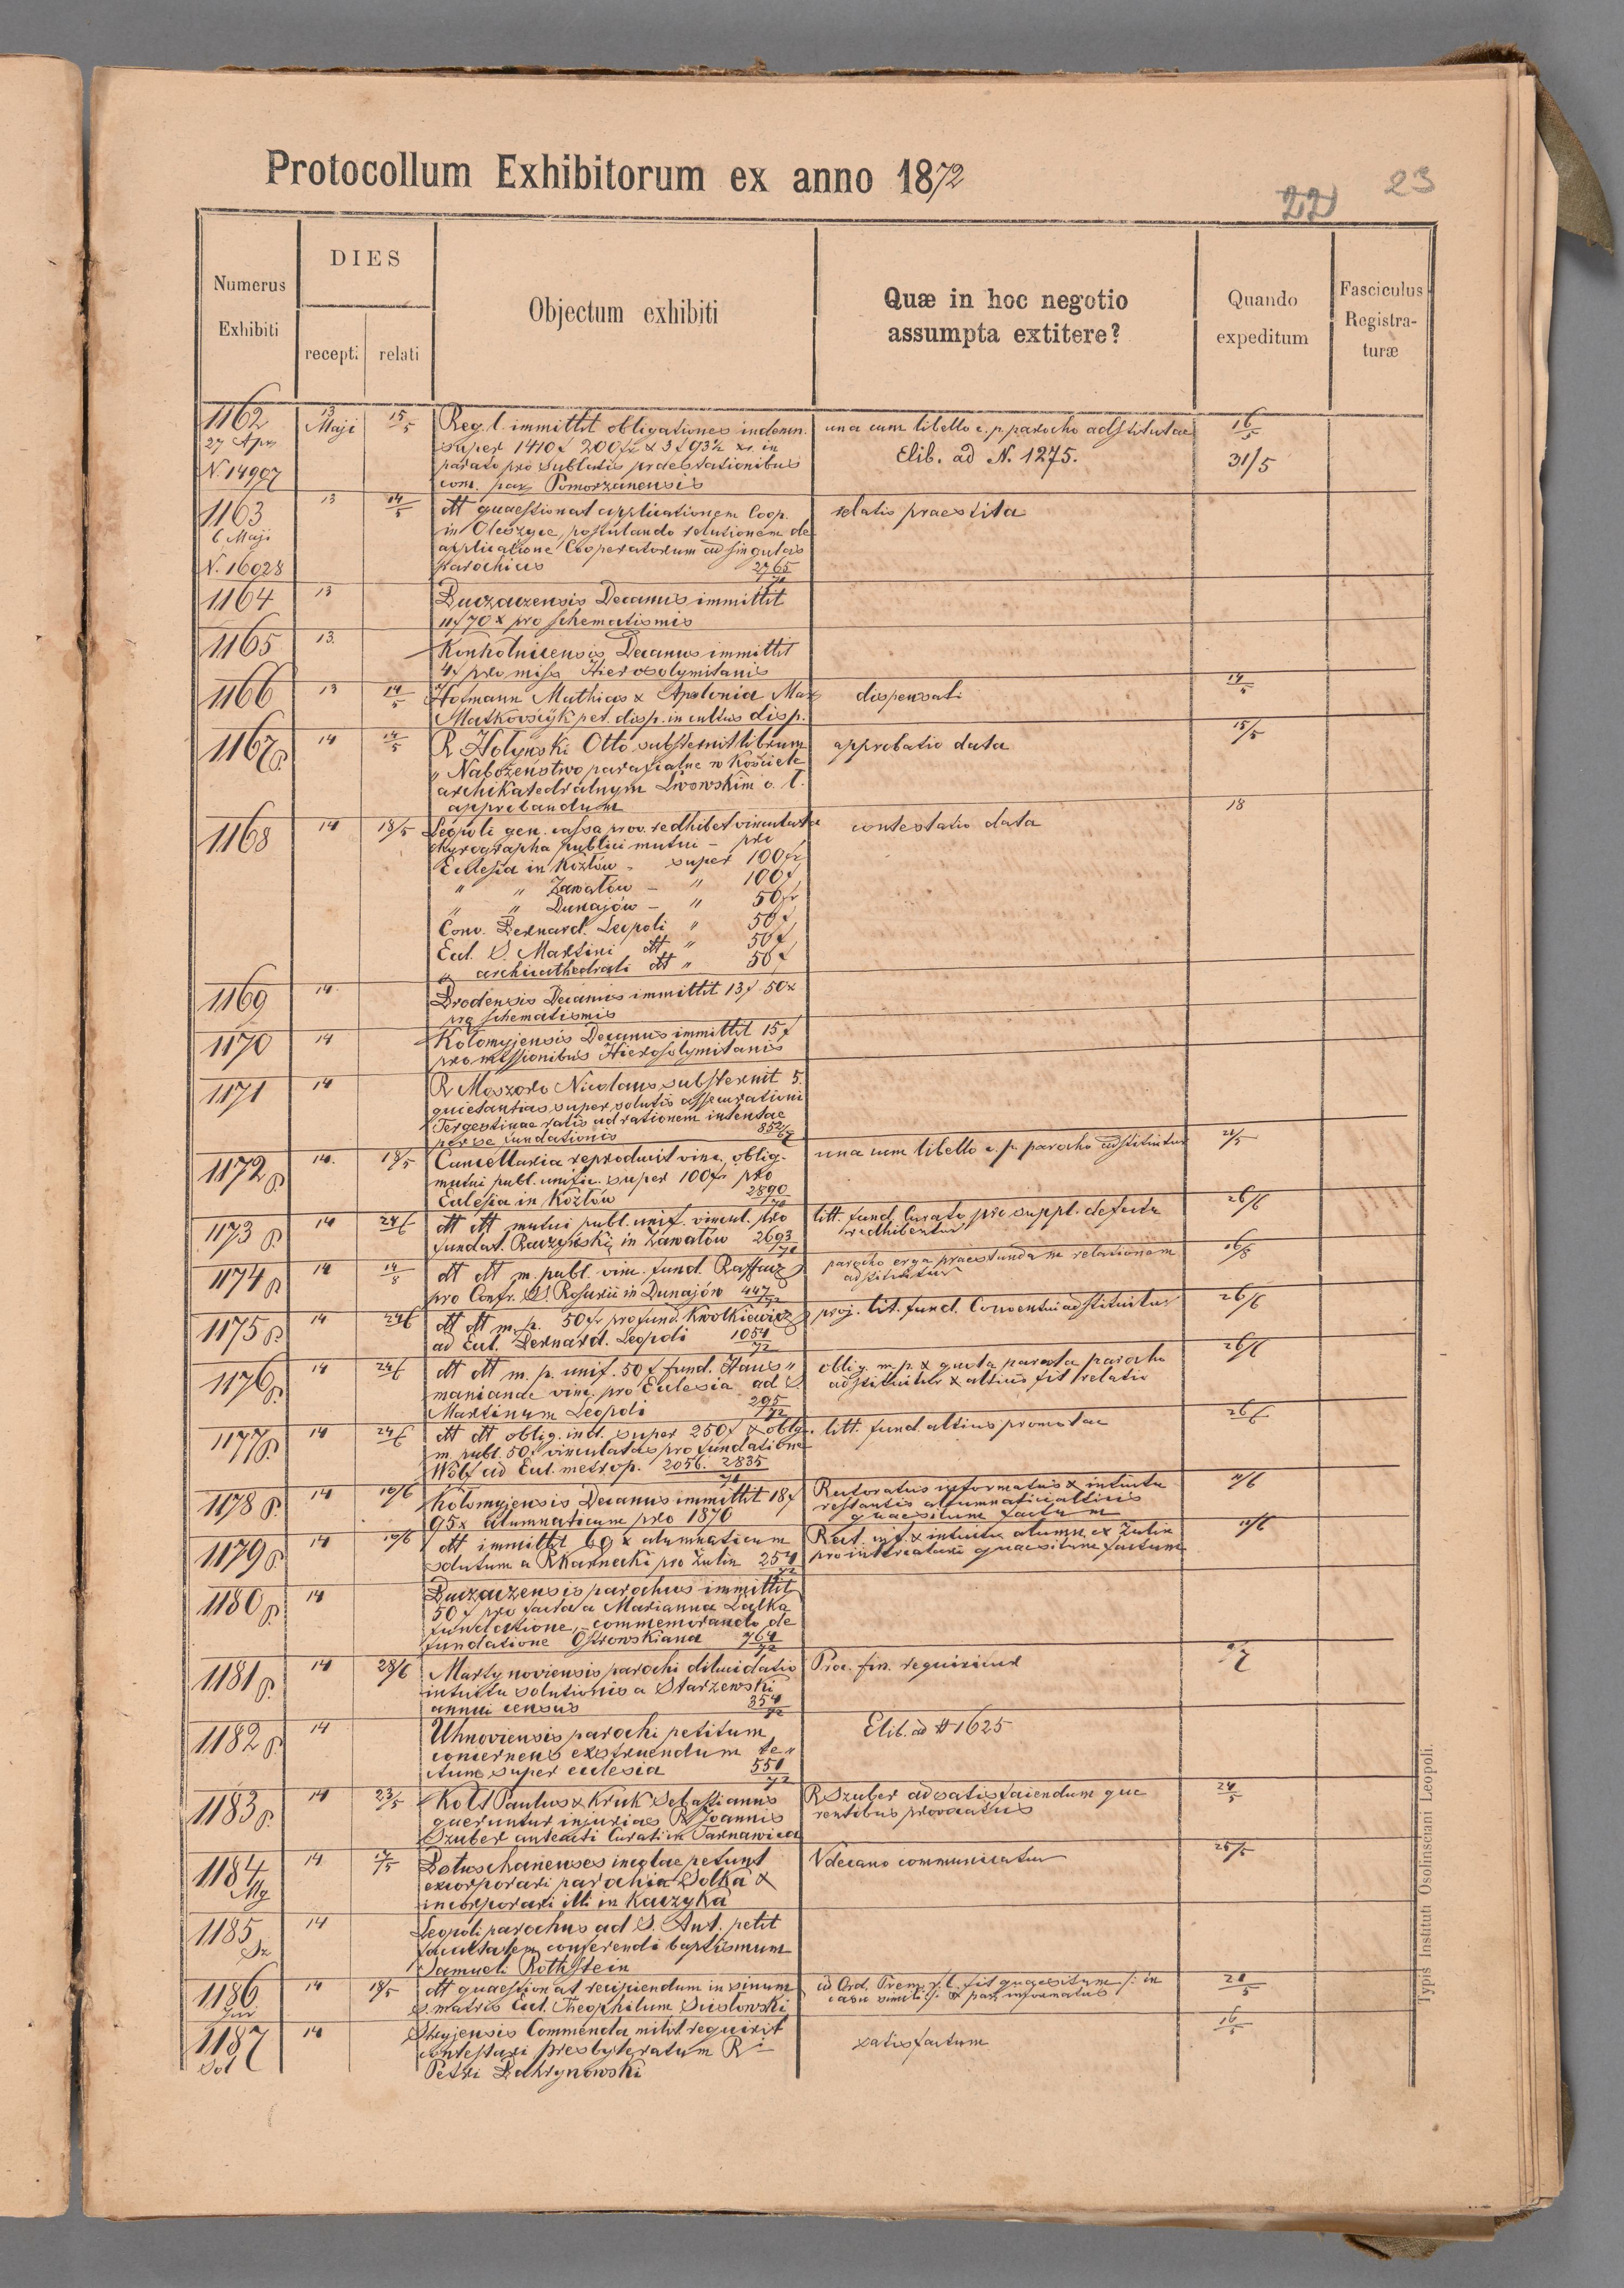 Protocollum Exhibitorum ex anno 1872
22 23
Numerus Exhibiti
DIES
recepti relati
Objectum exhibiti
Quæ in hoc negotio assumpta extitere?
Quando expeditum
Fasciculus Registraturæ
1162 13 Maji 15/5 Reg. l. immittit obligationes indemn. una cum libello e. p. parocho adstituta 16/5
27 Apr super 1410 f 200 fr & 3 f 93½ xr. in Elib. ad N. 1275. 31/5
N. 14907 parato pro sublatis praestationibus
com. par. Pomorzanensis
1163 13 14/5 dtt quaestionat applicationem Coop. relatio praestita
6 Maji in Oleszyce, postulando relationem de
applicatione Cooperatorum ad singulas
N. 16028 parochias 2765/71
1164 13 Buczaczensis Decanus immittit
11 f 70 x pro schematismis
1165 13. Konkolnicensis Decanus immittit
4 f pro miss Hierosolymitanis
1166 13 14/5 Hofmann Mathias & Apolonia dispensati 14/5
Matkovsčyk pet. disp. in cultus disp.
1167 P. 14 14/5 R Hołyński Otto substernit librum approbatio data 15/5
„Nabożeństwo parafialne w Kościele
archikatedralnym Lwowskim o. ł.
approbandum
1168 14 18/5 Leopoli gen. cassa prov. redhibet vinculata contestatio data 18
chyrographa publici mutui - pro
Ecclesia in Kozłów - super 100 fr
" " Zawałów - " 100 f
" " Dunajów - " 50 fr
Conv. Bernard. Leopoli " 50 f
Eccl. S. Martini dtt " 50 f
" archicathedrali dtt " 50 f
1169 14 Brodensis Decanus immittit 13 f 50 x
pro schematismis
1170 14 Kołomyjensis Decanus immittit 15 f
pro missionibus Hierosolymitanis
1171 14 R Moszoro Nicolaus substernit 5.
quietantias super solutis assecurationi
Tergestinae ratis ad rationem intentae
per se fundationis 852/67
1172 P. 14. 18/5 Cancellaria reproducit vinc. oblig. una cum libello e. p. parocho adstituitur 21/5
mutui publ. unific. super 100 fr pro
Ecclesia in Kozłów 2890/71
1173 P. 14 24/6 dtt dtt mutui publ. unif. vincul. pro litt. fund. Curato pro suppl. defectu 26/6
fundat. Raczyński in Zawałów 2693/71 redhibentur
1174 P 14 14/8 dtt dtt m. publ. vinc. fund. parocho erga praestandam relationem 16/8
pro Confr. S. Rosarii in Dunajów 447/72 adstituitur
1175 P. 14 24/6 dtt dtt m. p. 50 fr pro fund. Kwolkiewicz proj. lit. fund. Conventui adstituitur 26/6
ad Eccl. Bernard. Leopoli 1054/72
1176 P. 14 24/6 dtt dtt m. p. unif. 50 f fund. Haus" oblig. m. p. & quota parata parocho 26/6
maniande vinc. pro Ecclesia ad S adstituitur & altius fit relatio
Martinum Leopoli 295/72
1177 P. 14 24/6 dtt dtt oblig. ind. super 250 f & oblg. litt. fund. altius promotae 26/6
m. publ. 50 f vinculatas pro fundatione
Wolf ad Eccl. metrop. 2056. 2835/71
1178 P. 14 10/6 Kołomyjensis Decanus immittit 18 f Rectoratus informatus & intuitu 11/6
95 x alumnaticum pro 1870 restantis alumnatici altius
quaesitum factum
1179 P. 14 10/6 dtt immittit x alumnaticum Rect. inf. & intuitu alumn. ex Żulin 11/6
solutum a R Karnecki pro Żulin 254/72 pro quaesitum factum
1180 P. 14 Buczaczensis parochus immittit
50 f pro facta a Marianna Lalka
fundatione, commemorando de
fundatione Ostrowskiana 764/72
1181 P. 14 28/6 Martynoviensis parochi dilucidatio Proc. fin. requiritur
intuitu solutionis a Starzewski
annui census 354/72
1182 P. 14 Uhnoviensis parochi petitum Elib. ad # 1625
concernens exstruendum te"
ctum super ecclesia 551/72
1183 P. 14 23/5 Kolt Paulus & Kruk Sebastianus R Szuber ad satisfaciendum que 24/5
queruntur injurias R Joannis rentibus provocatus
Szuber anteacti Curati in Tarnawica
1184 Mg 14 17/5 Botuschanenses incolae petunt Vdecano communicatur 25/5
excorporari parochia Solka &
incorporari illi in Kaczyka
1185 Sz 14 Leopoli parochus ad S. Ant. petit
facultatem conferendi baptismum
Samueli Rothstein
1186 Jur 14 18/5 dtt quaestionat recipiendum in sinum ad Ord. Prem. r. l. fit quaesitum /: in 20/5
S. matris Eccl. Theophilum Susłowski casu simili :/ & par. informatus
1187 Sol 14 Stryjensis Commenda milit requirit satisfactum 16/5
contestari presbyteratum R
Petri Bahrynowski
Typis Instituti Osolinsciani Leopoli.